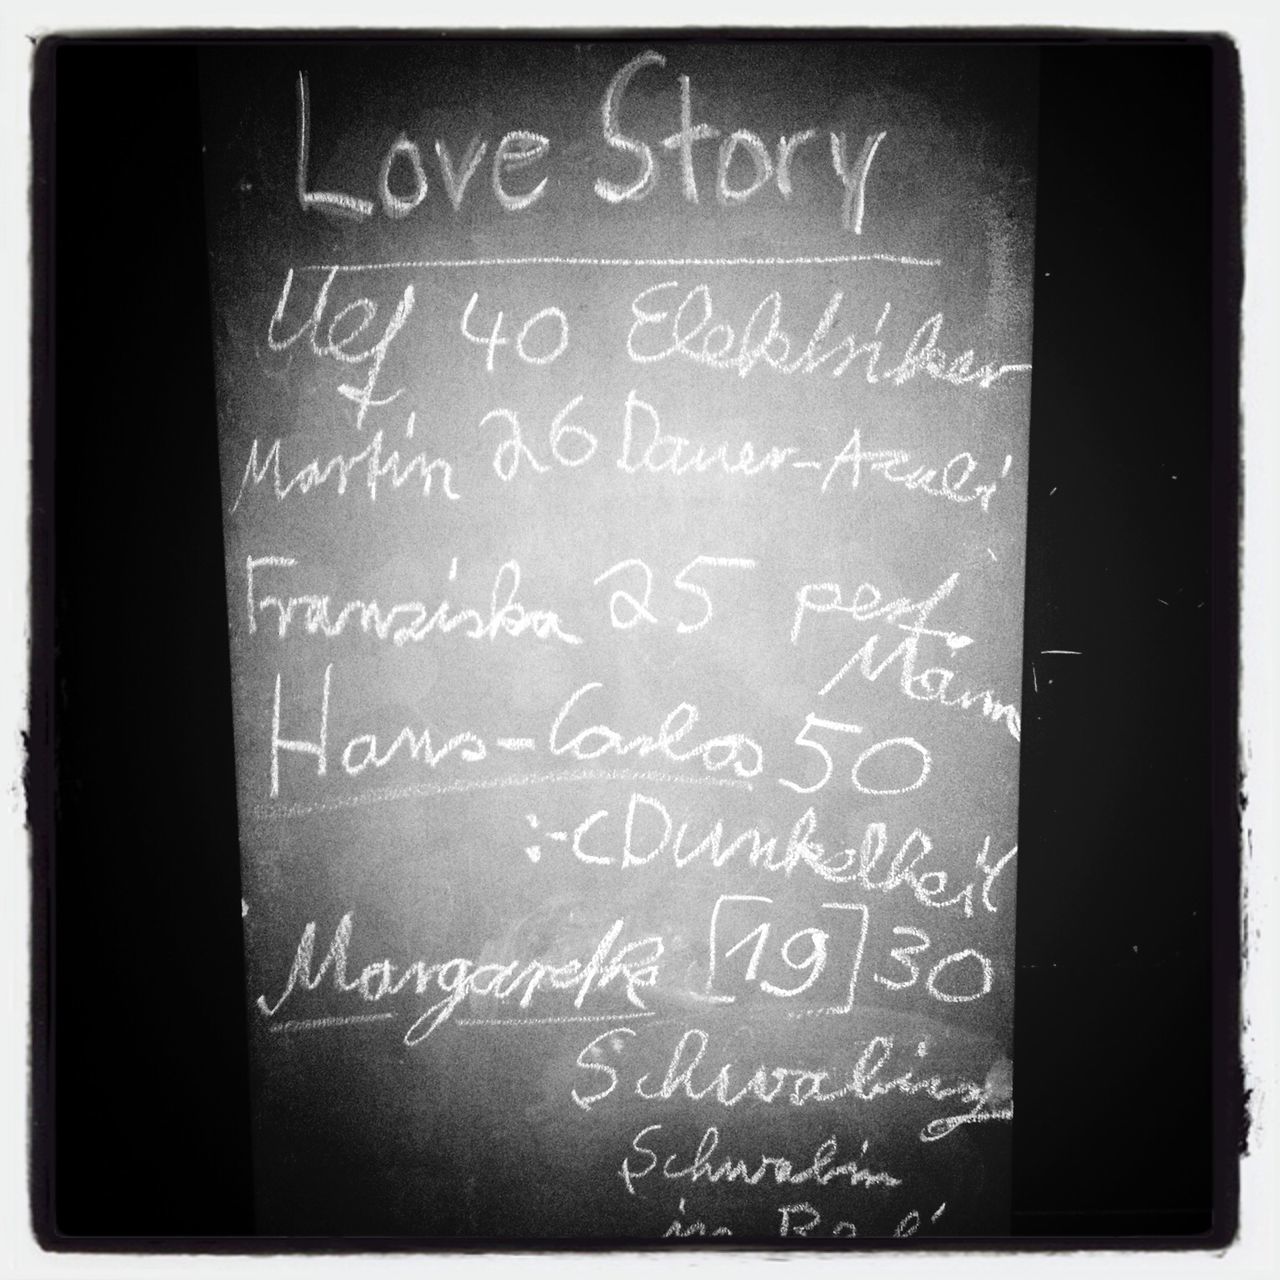 Love Story
40 Elektriker
Martin 26 Dauer-Azubi
Franziska 25 perf.
Mann
Hans-Carlos 50
:-( Dunkelheit
Margarethe [19] 30
Schwabing
Schwabin
in